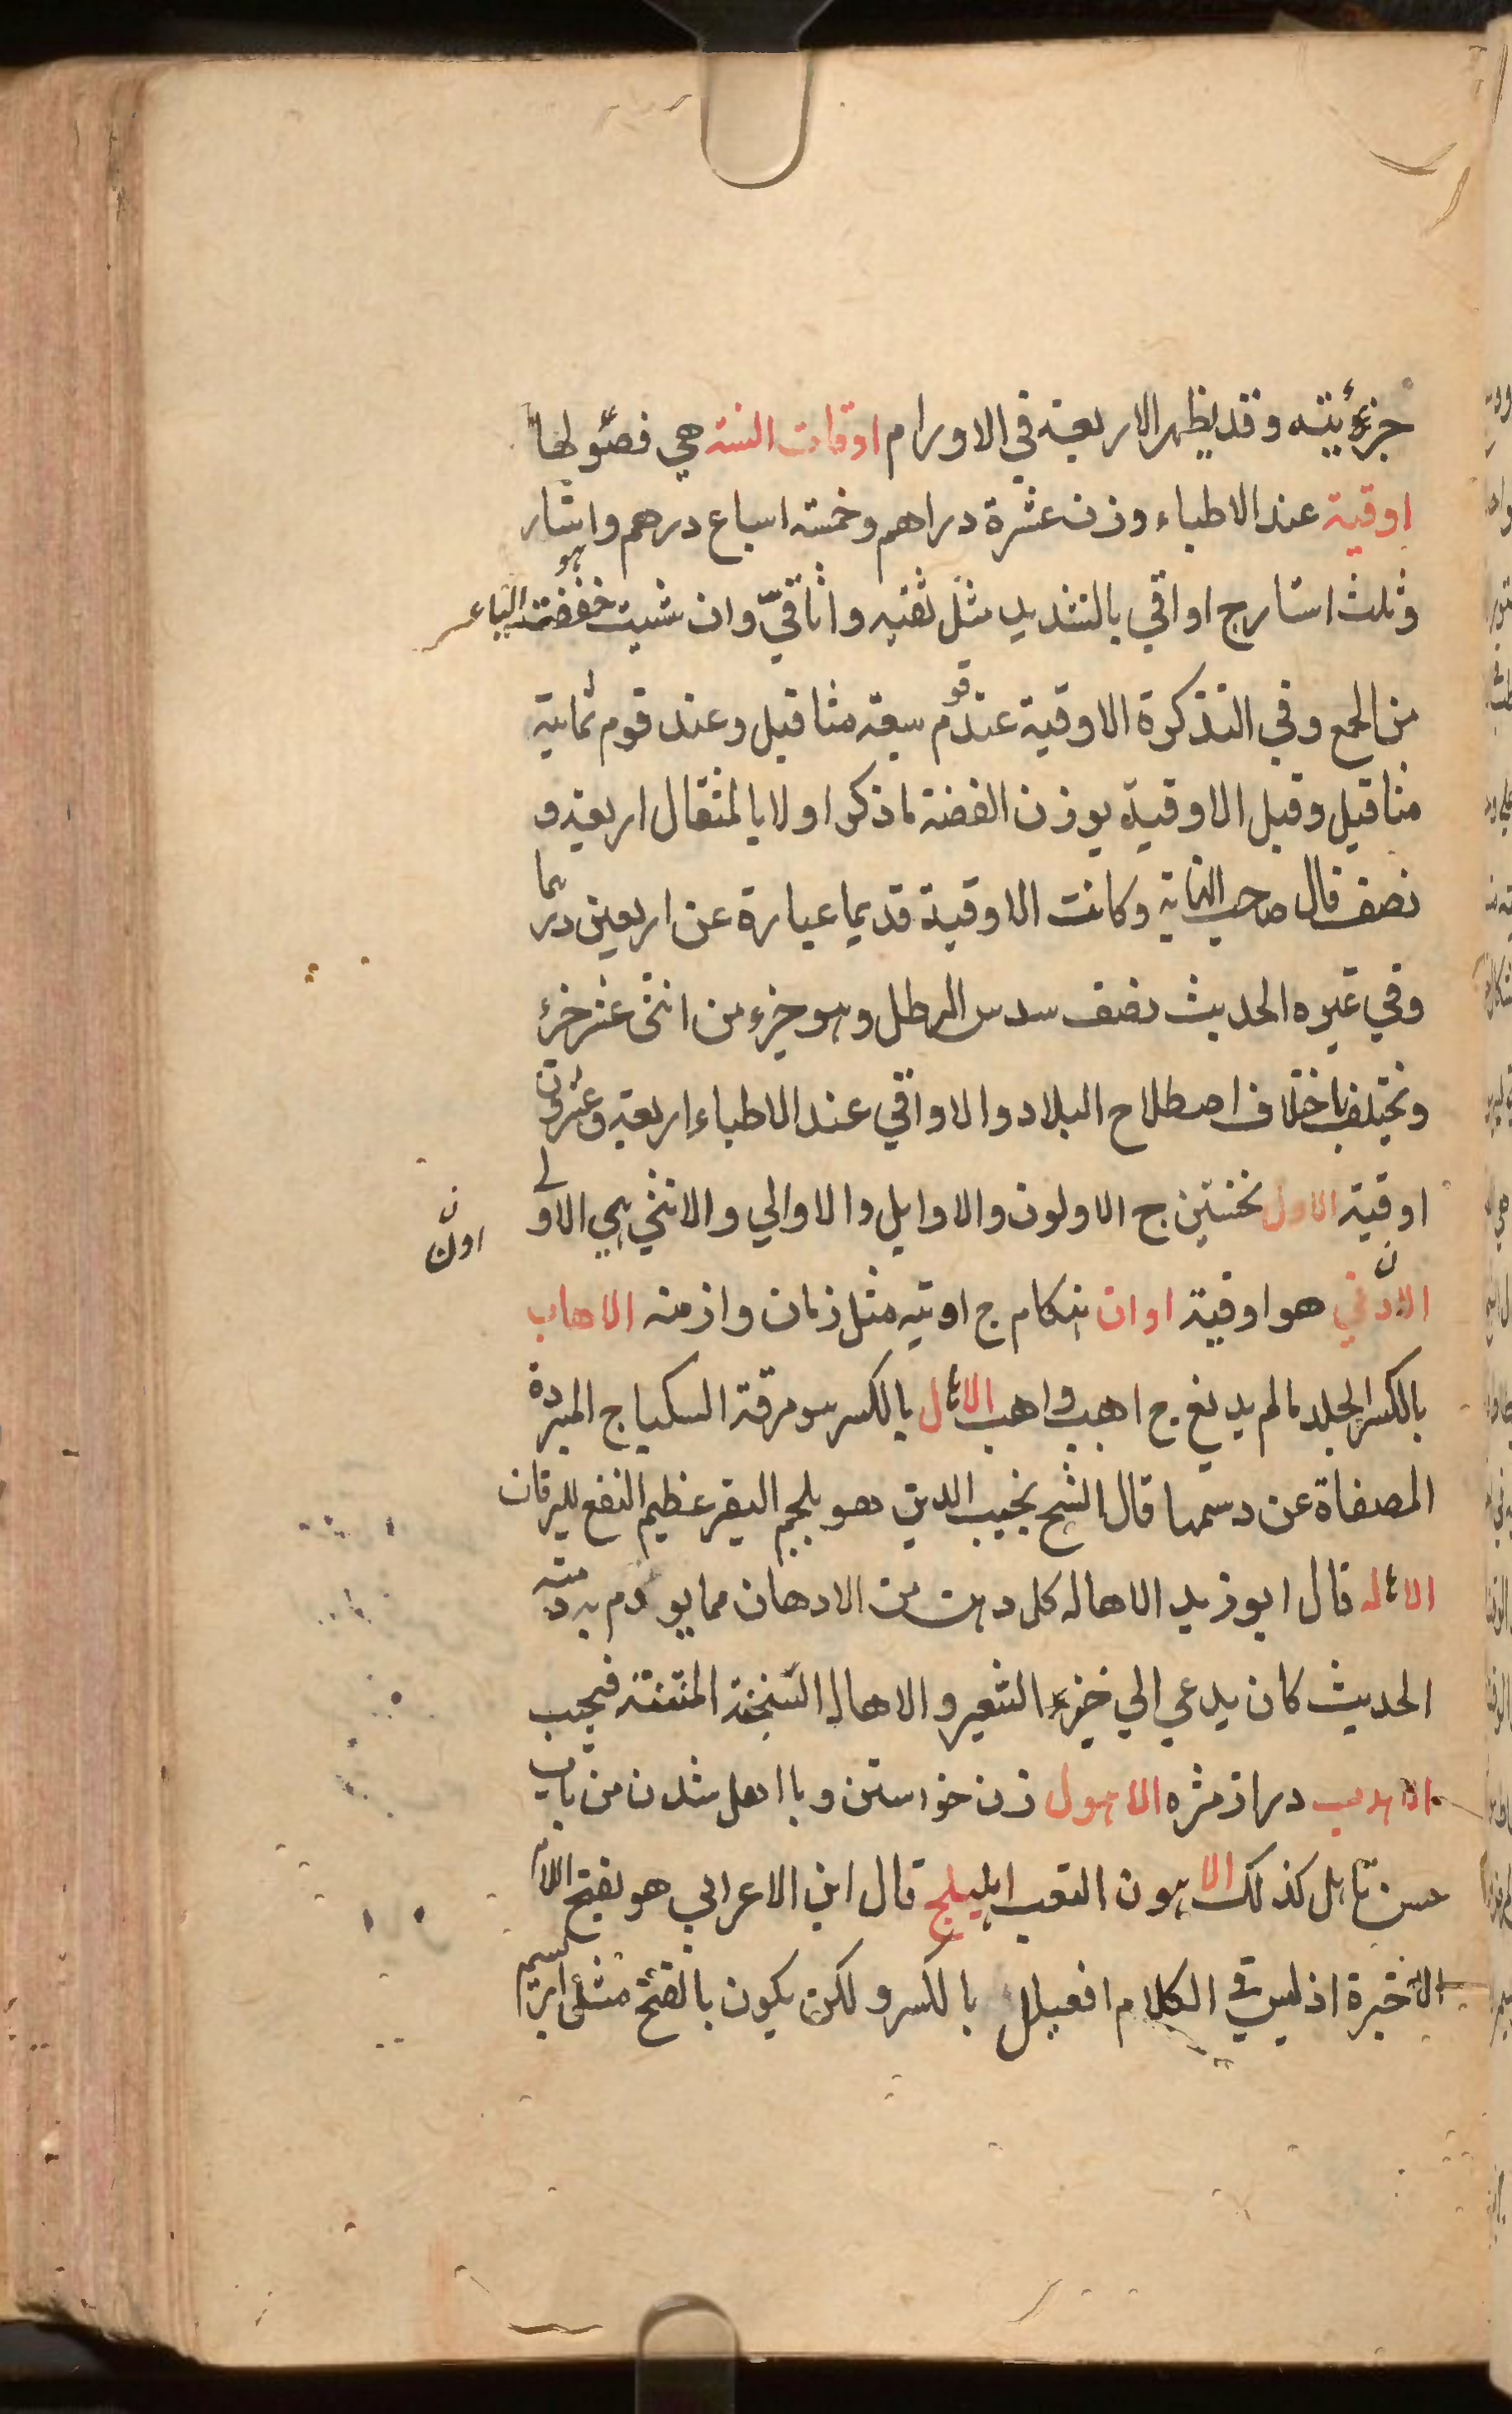 جزئيته وقد يظهر الاربعة في الاورام اوقات السنة هي فصولها
اوقية عند الاطباء وزن عشرة دراهم وخمسة اسباع درهم واستار
هو
وثلث استار ج اواقي بالتشديد مثل ثفنيه واثاقيّ وان شيت خففت الياء
من الجمع وفي التذكرة الاوقية عند قوم سبعة مثاقيل وعند قوم ثمانية
مثاقيل وقيل الاوقية يوزن الفضة لما ذكر اولا بالمثقال اربعة و
نصف قال صاحب النهاية وكانت الاوقية قديما عبارة عن اربعين درهما
وفي غيره الحديث نصف سدس الرطل وهو جزء من اثنى عشر جزء
وتختلف باختلاف اصطلاح البلاد والاواقي عند الاطباء اربعة وعشرون
اوقية الاول نخستين ج الاولون والاوايل والاوالي والانثي هي الاولي
ن
اون
هو اوقية اوان هنكام ج اونه مثل زمان وازمنه الاهاب
بالكسر الجلد مالم يدبغ ج اهب واهب بالكسر هو مرقة السكباج المبردة
المصفاة عن دسمها قال الشيخ نجيب الدين هو بلحم البقر عظيم النفع لليرقان
قال ابو زيد الاهاله كل دهن من الادهان مما يودم به ومنه
الحديث كان يدعي الي خبز الشعير والاهاله السنخة المنتنة فيجيب
الاهدب دراز مژه الاهول زن خواستن وبا اهل شدن من باب
تاهل كذلك الاهون التعب اهليلج قال ابن الاعرابي هو بفتح اللام
الاخيرة اذ ليس في الكلام افعيلل بالكسر ولكن يكون بالفتح مثل ابريسم